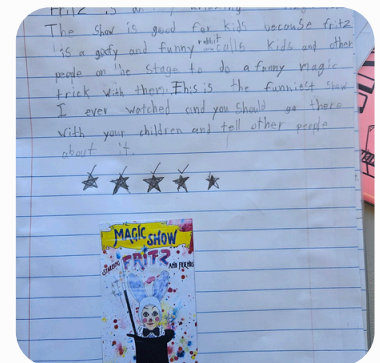 Fritz is an
The show is good for kids because fritz
is a goofy and funny rabbit calls kids and other
people on the stage to do a funny magic
trick with them. This is the funniest show
I ever watched and you should go there
with your children and tell other people
about it
MAGIC SHOW
FRITZ AND FRIENDS